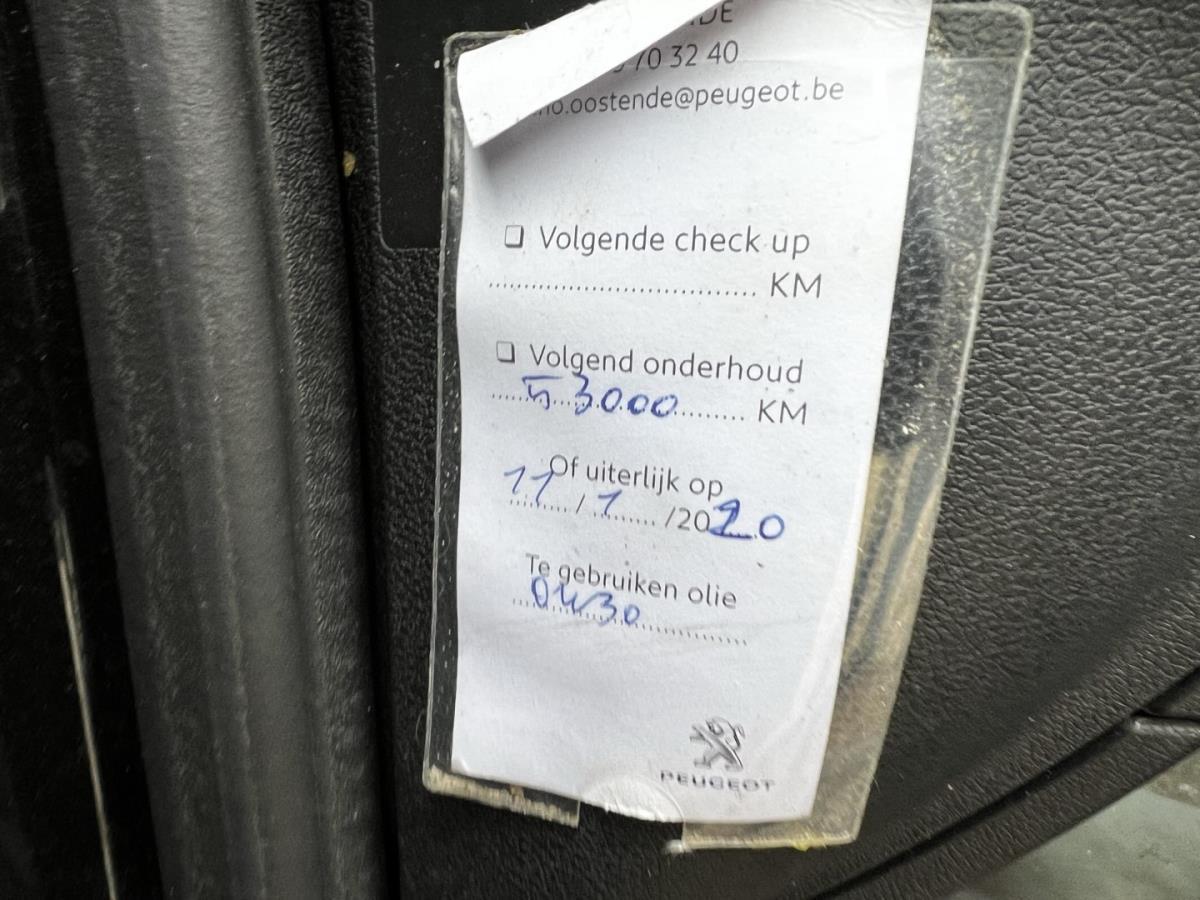 70 32 40
no.oostende@peugeot.be
❏ Volgende check up
.................................. KM
❏ Volgend onderhoud
53000 KM
Of uiterlijk op
11/1/2020
Te gebruiken olie
0W30
PEUGEOT